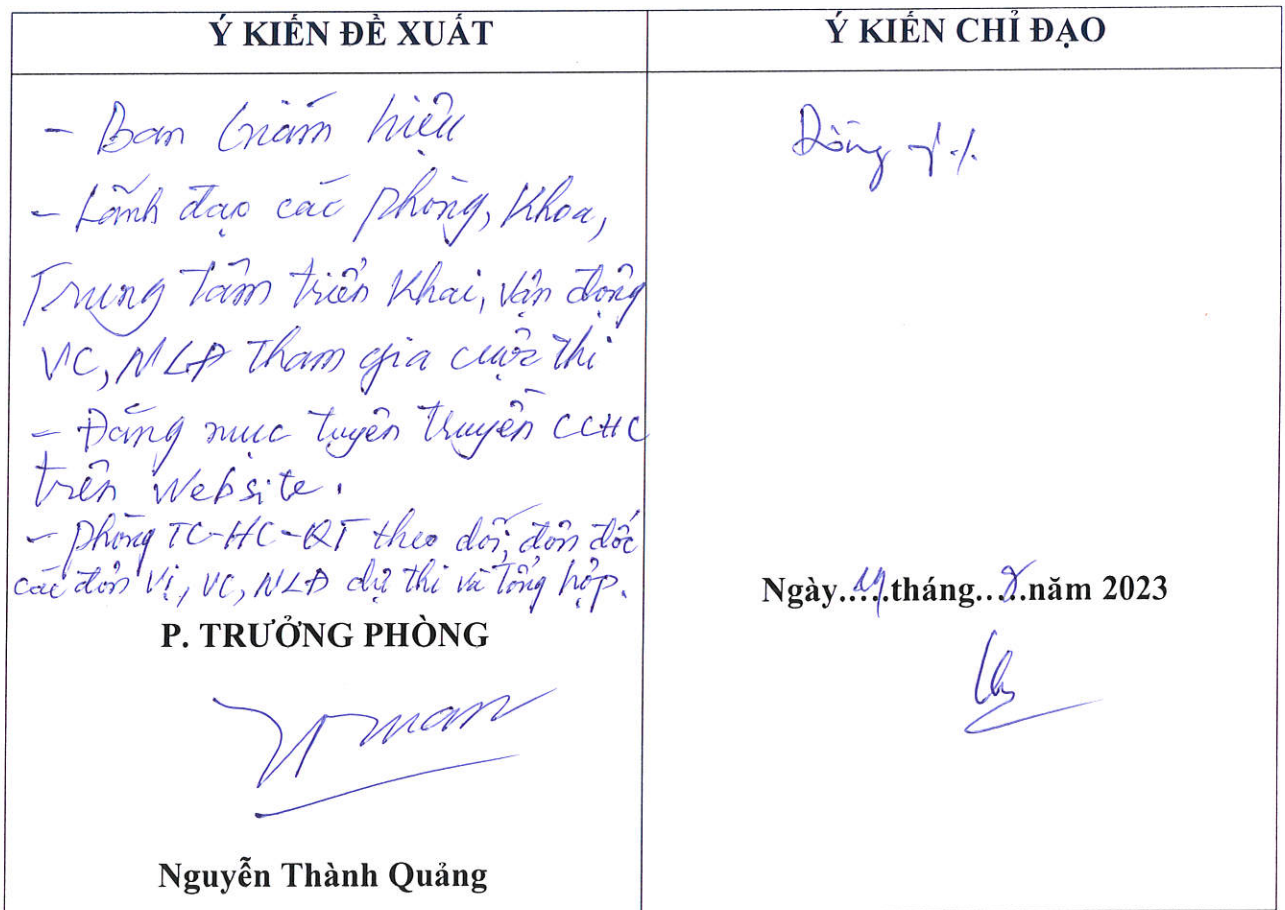 Ý KIẾN ĐỀ XUẤT
- Ban Giám hiệu
- Lãnh đạo các phòng, Khoa,
Trung tâm triển khai, vận động
VC, NLĐ tham gia cuộc thi
- Đăng mục tuyên truyền CCHC
trên Website.
- Phòng TC-HC-QT theo dõi, đôn đốc
các đơn vị, VC, NLĐ dự thi và tổng hợp.
P. TRƯỞNG PHÒNG
Nguyễn Thành Quảng
Ý KIẾN CHỈ ĐẠO
Đồng ý ./.
Ngày.....tháng.....năm 2023